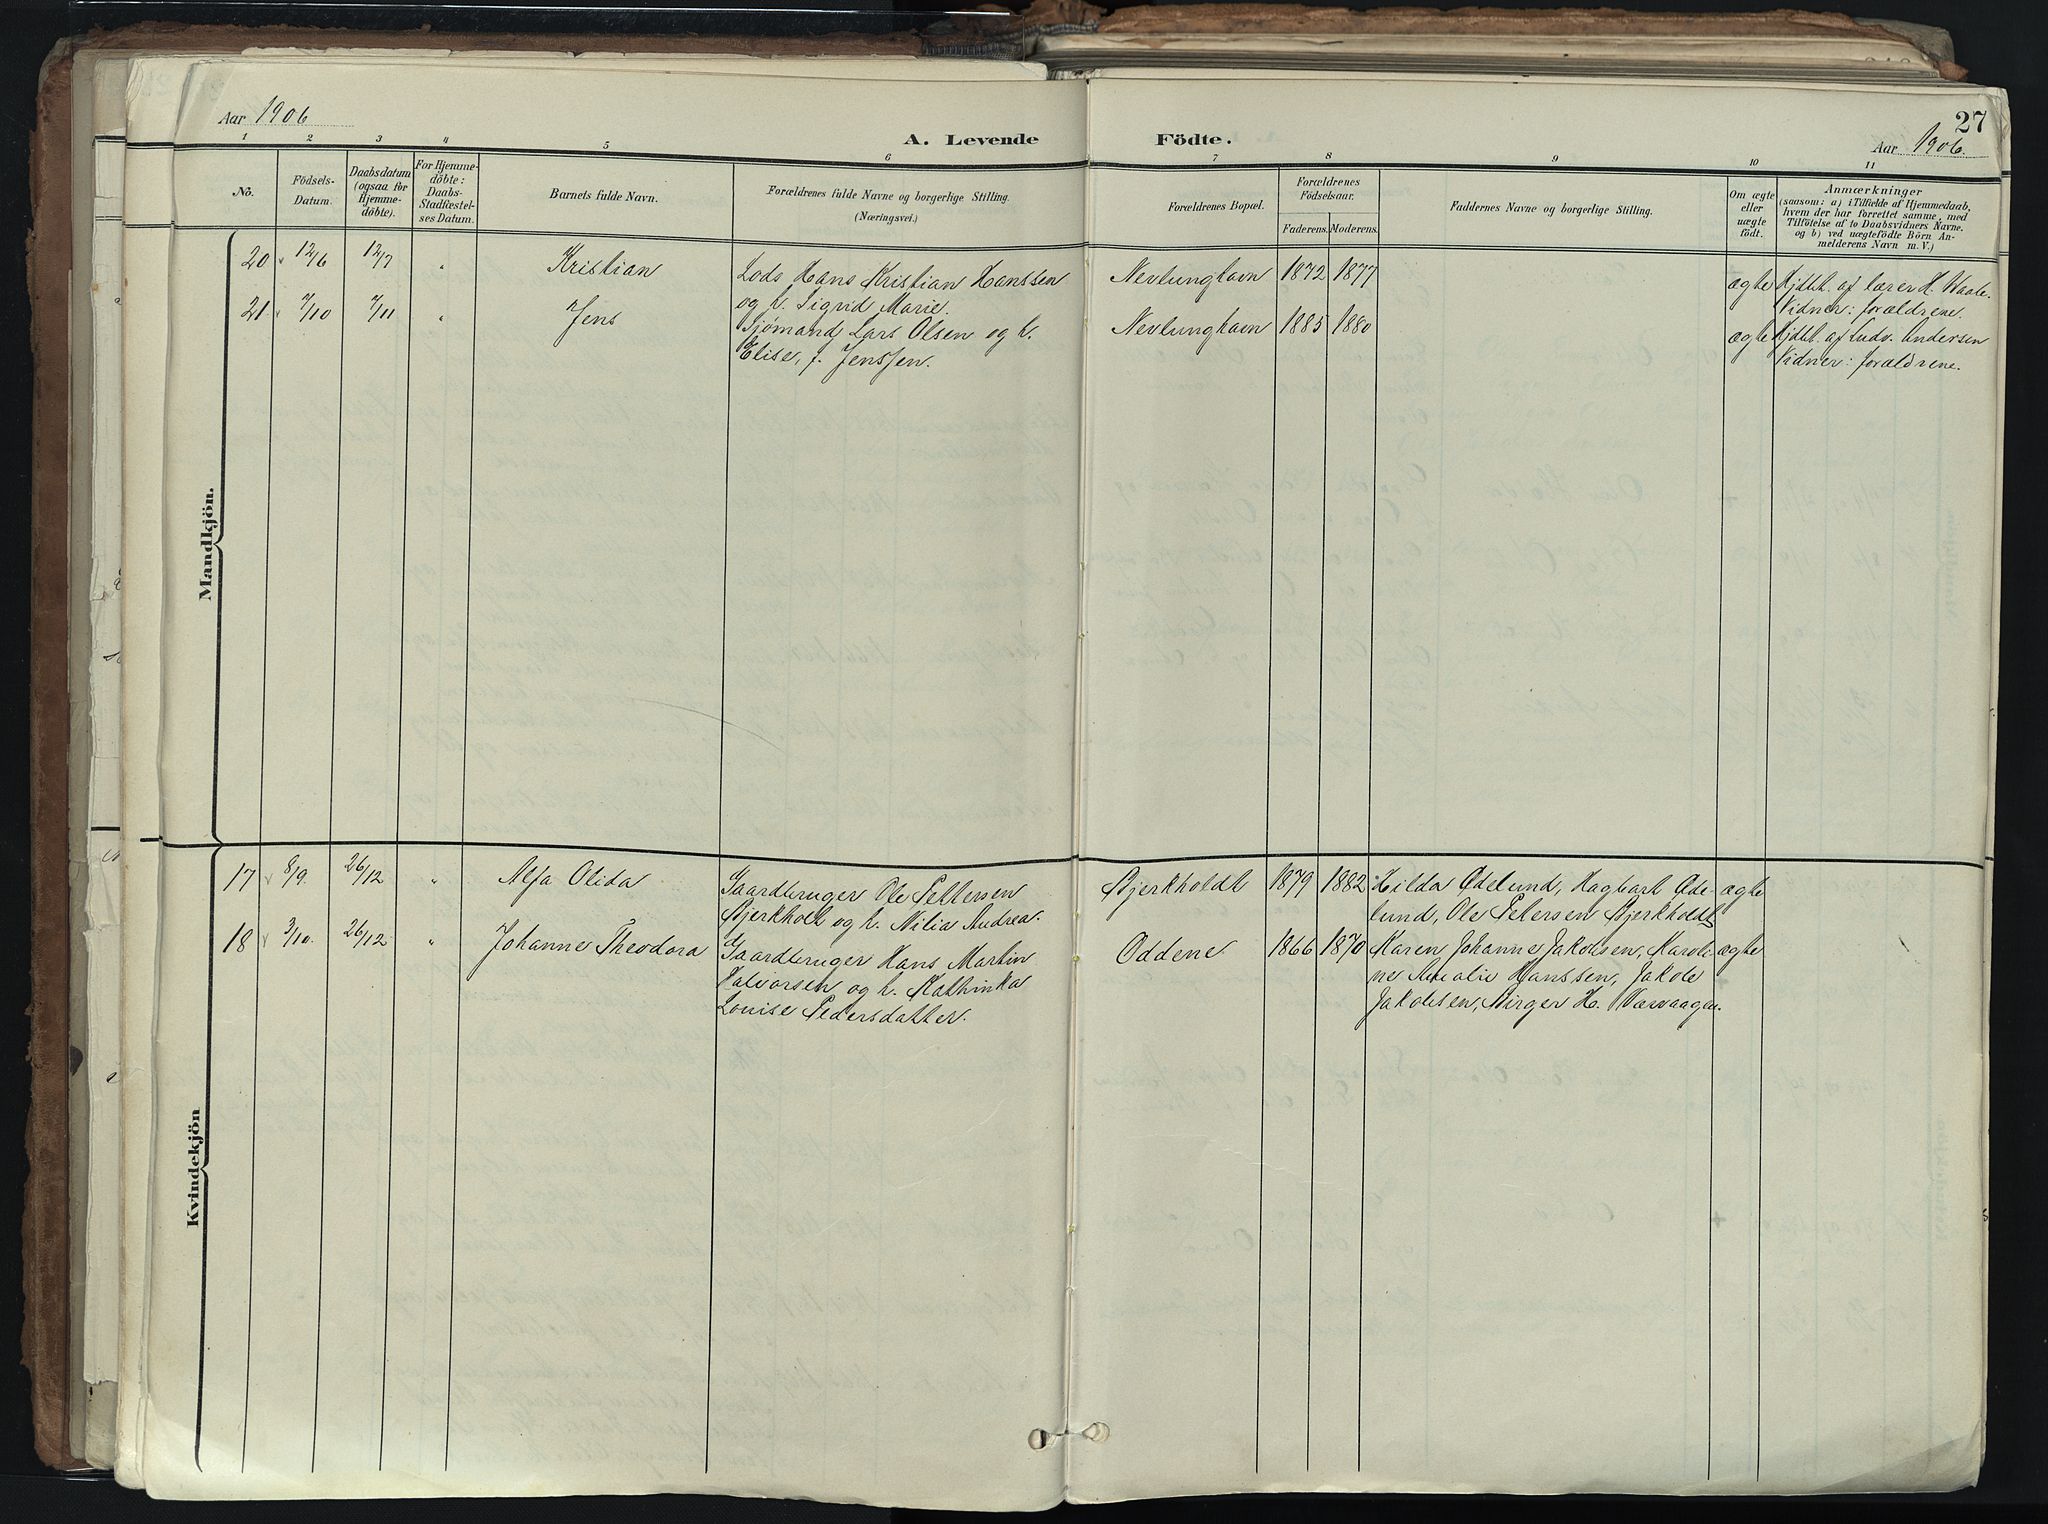 Aar 1906
A. Levende Födte.
27
Aar 1906.
1 2 3 4 5 6 7 8 9 10 11
No.
Födsels-
Datum.
Daabsdatum
(ogsaa for
Hjemme-
döbte).
For Hjemme-
döbte:
Daabs-
Stadfæstel-
ses Datum.
Barnets fulde Navn.
Forældrenes fulde Navne og borgerlige Stilling.
(Næringsvei.)
Forældrenes Bopæl.
Forældrenes
Födselsaar.
Faderens. Moderens.
Faddernes Navne og borgerlige Stilling.
Om ægte
eller
uægte
födt.
Anmærkninger
(saasom: a) i Tilfælde af Hjemmedaab,
hvem der har forrettet samme, med
Tilföielse af to Daabsvidners Navne.
og b) ved uægtefödte Börn An-
melderens Navn m. V.)
Mandkjön.
20 12/6 12/7 " Kristian Lods Hans Kristian Hanssen Nevlunghavn 1872 1877 ægte Hjdbt. af lærer H. Waale.
og h. Sigrid Marie. Vidner: forældrene.
21 7/10 7/11 " Jens Sjømand Lars Olsen og h. Nevlunghavn 1885 1880 ægte Hjdbt. af Ludv. Andersen
Elise, f. Jenssen. Vidner: forældrene.
Kvindekjön
17 8/9. 26/12 " Alfa Olida Gaardbruger Ole Pettersen Bjerkholdt 1879 1882 Hilda Ødelund, Hagbart Øde- ægte
Bjerkholt og h. Nilia Andrea. lund, Ole Petersen Bjerkholdt
18 3/10. 26/12 " Johanne Theodora Gaardbruger Hans Martin Oddene 1866 1870 Karen Johanne Jakobsen, Karoli- ægte
Halvorsen og h. Kathinka ne Amalie Hanssen, Jakob
Louise Pedersdatter. Jakobsen, Birger H. Varvaagen.